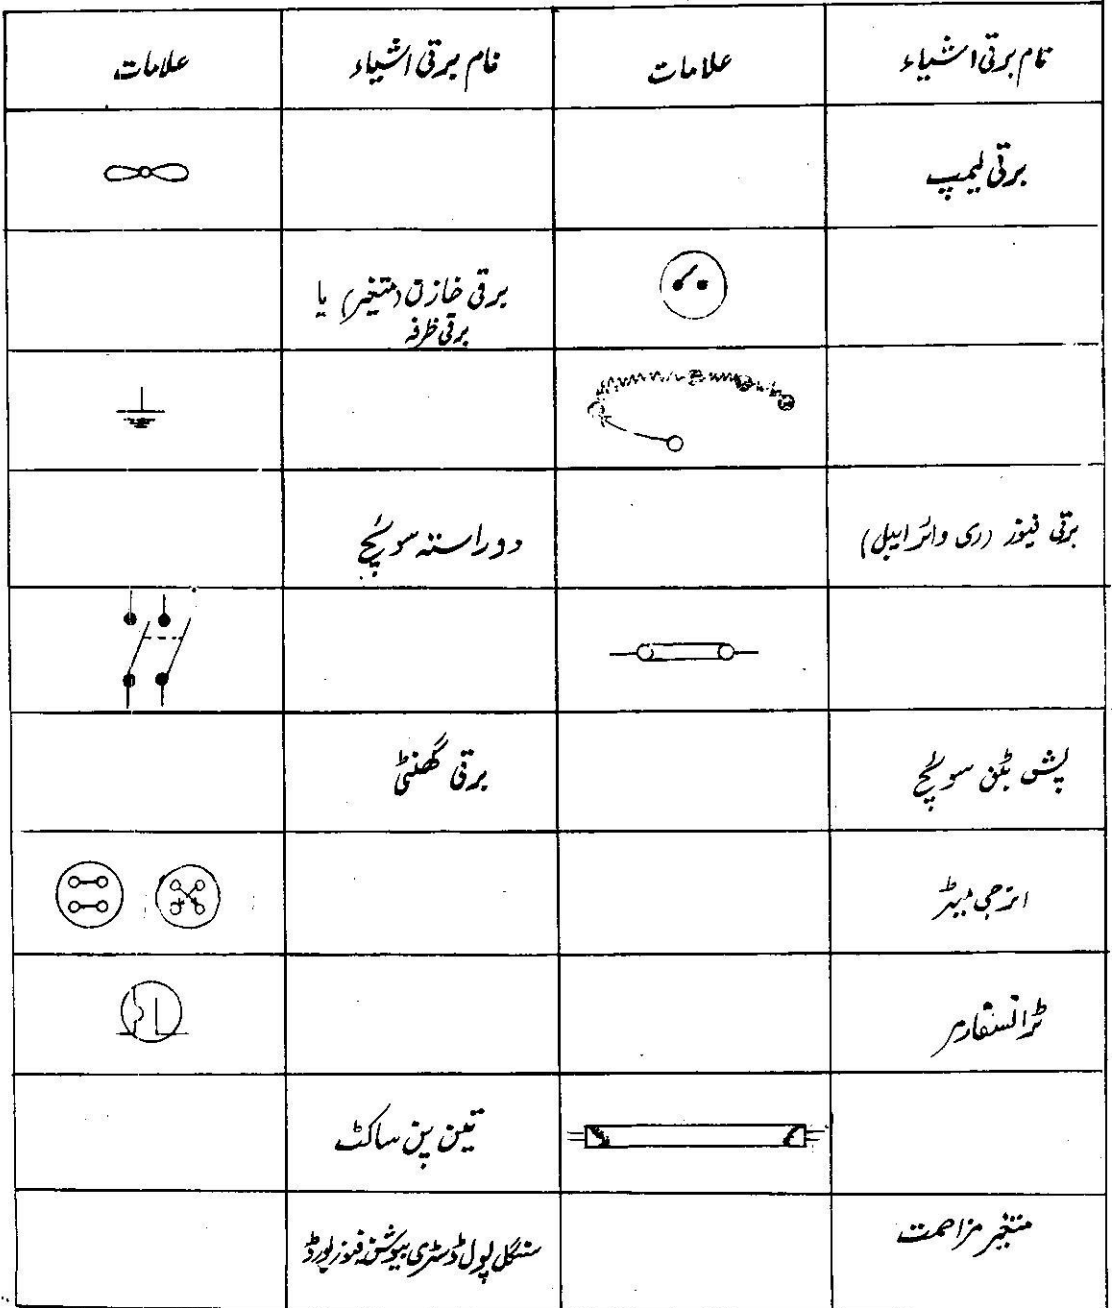 نام برقی اشیاء
علامات
نام برقی اشیاء
علامات
برقی لیمپ
برقی خازن (متغیر) یا
برقی ظرفہ
برقی فیوز (ری وائر ایبل)
دو راستہ سوئچ
پش بٹن سوئچ
برقی گھنٹی
انرجی میٹر
ٹرانسفارمر
تین پن ساکٹ
متغیر مزاحمت
سنگل پول ڈسٹری بیوشن فیوز بورڈ